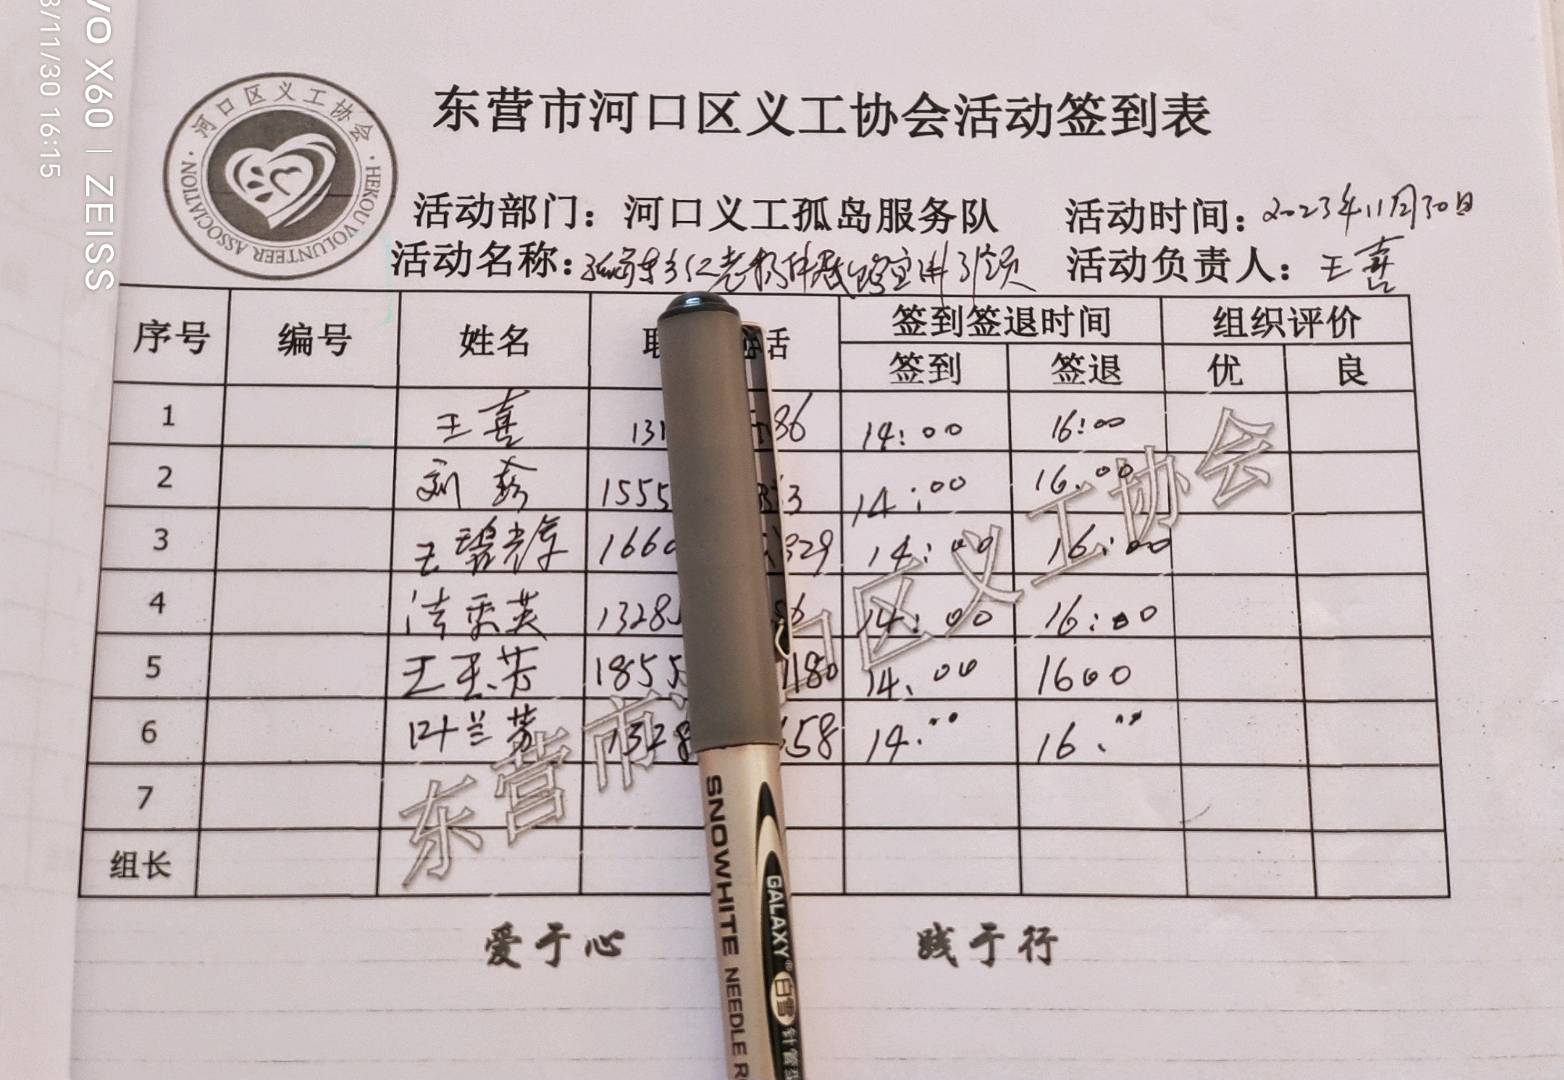 VO X60 | ZEISS
3/11/30 16:15
河口区义工协会
HEKOU VOLUNTEER ASSOCIATION
东营市河口区义工协会活动签到表
活动部门：河口义工孤岛服务队 活动时间：2023年11月30日
活动名称： 活动负责人：王喜
序号 编号 姓名 话 签到签退时间 组织评价
签到 签退 优 良
1 王喜 131 86 14:00 16:00
2 刘 1555 14:00 16:00
3 王碧 1660 329 14:00 16:00
4 1328 14:00 16:00
5 王玉芳 1855 1180 14:00 1600
6 叶兰芳 1328 658 14:00 16:00
7
组长
东营市 口区义工协会
爱于心 践于行
SNOWHITE NEEDLE R
GALAXY® 白雪 针管